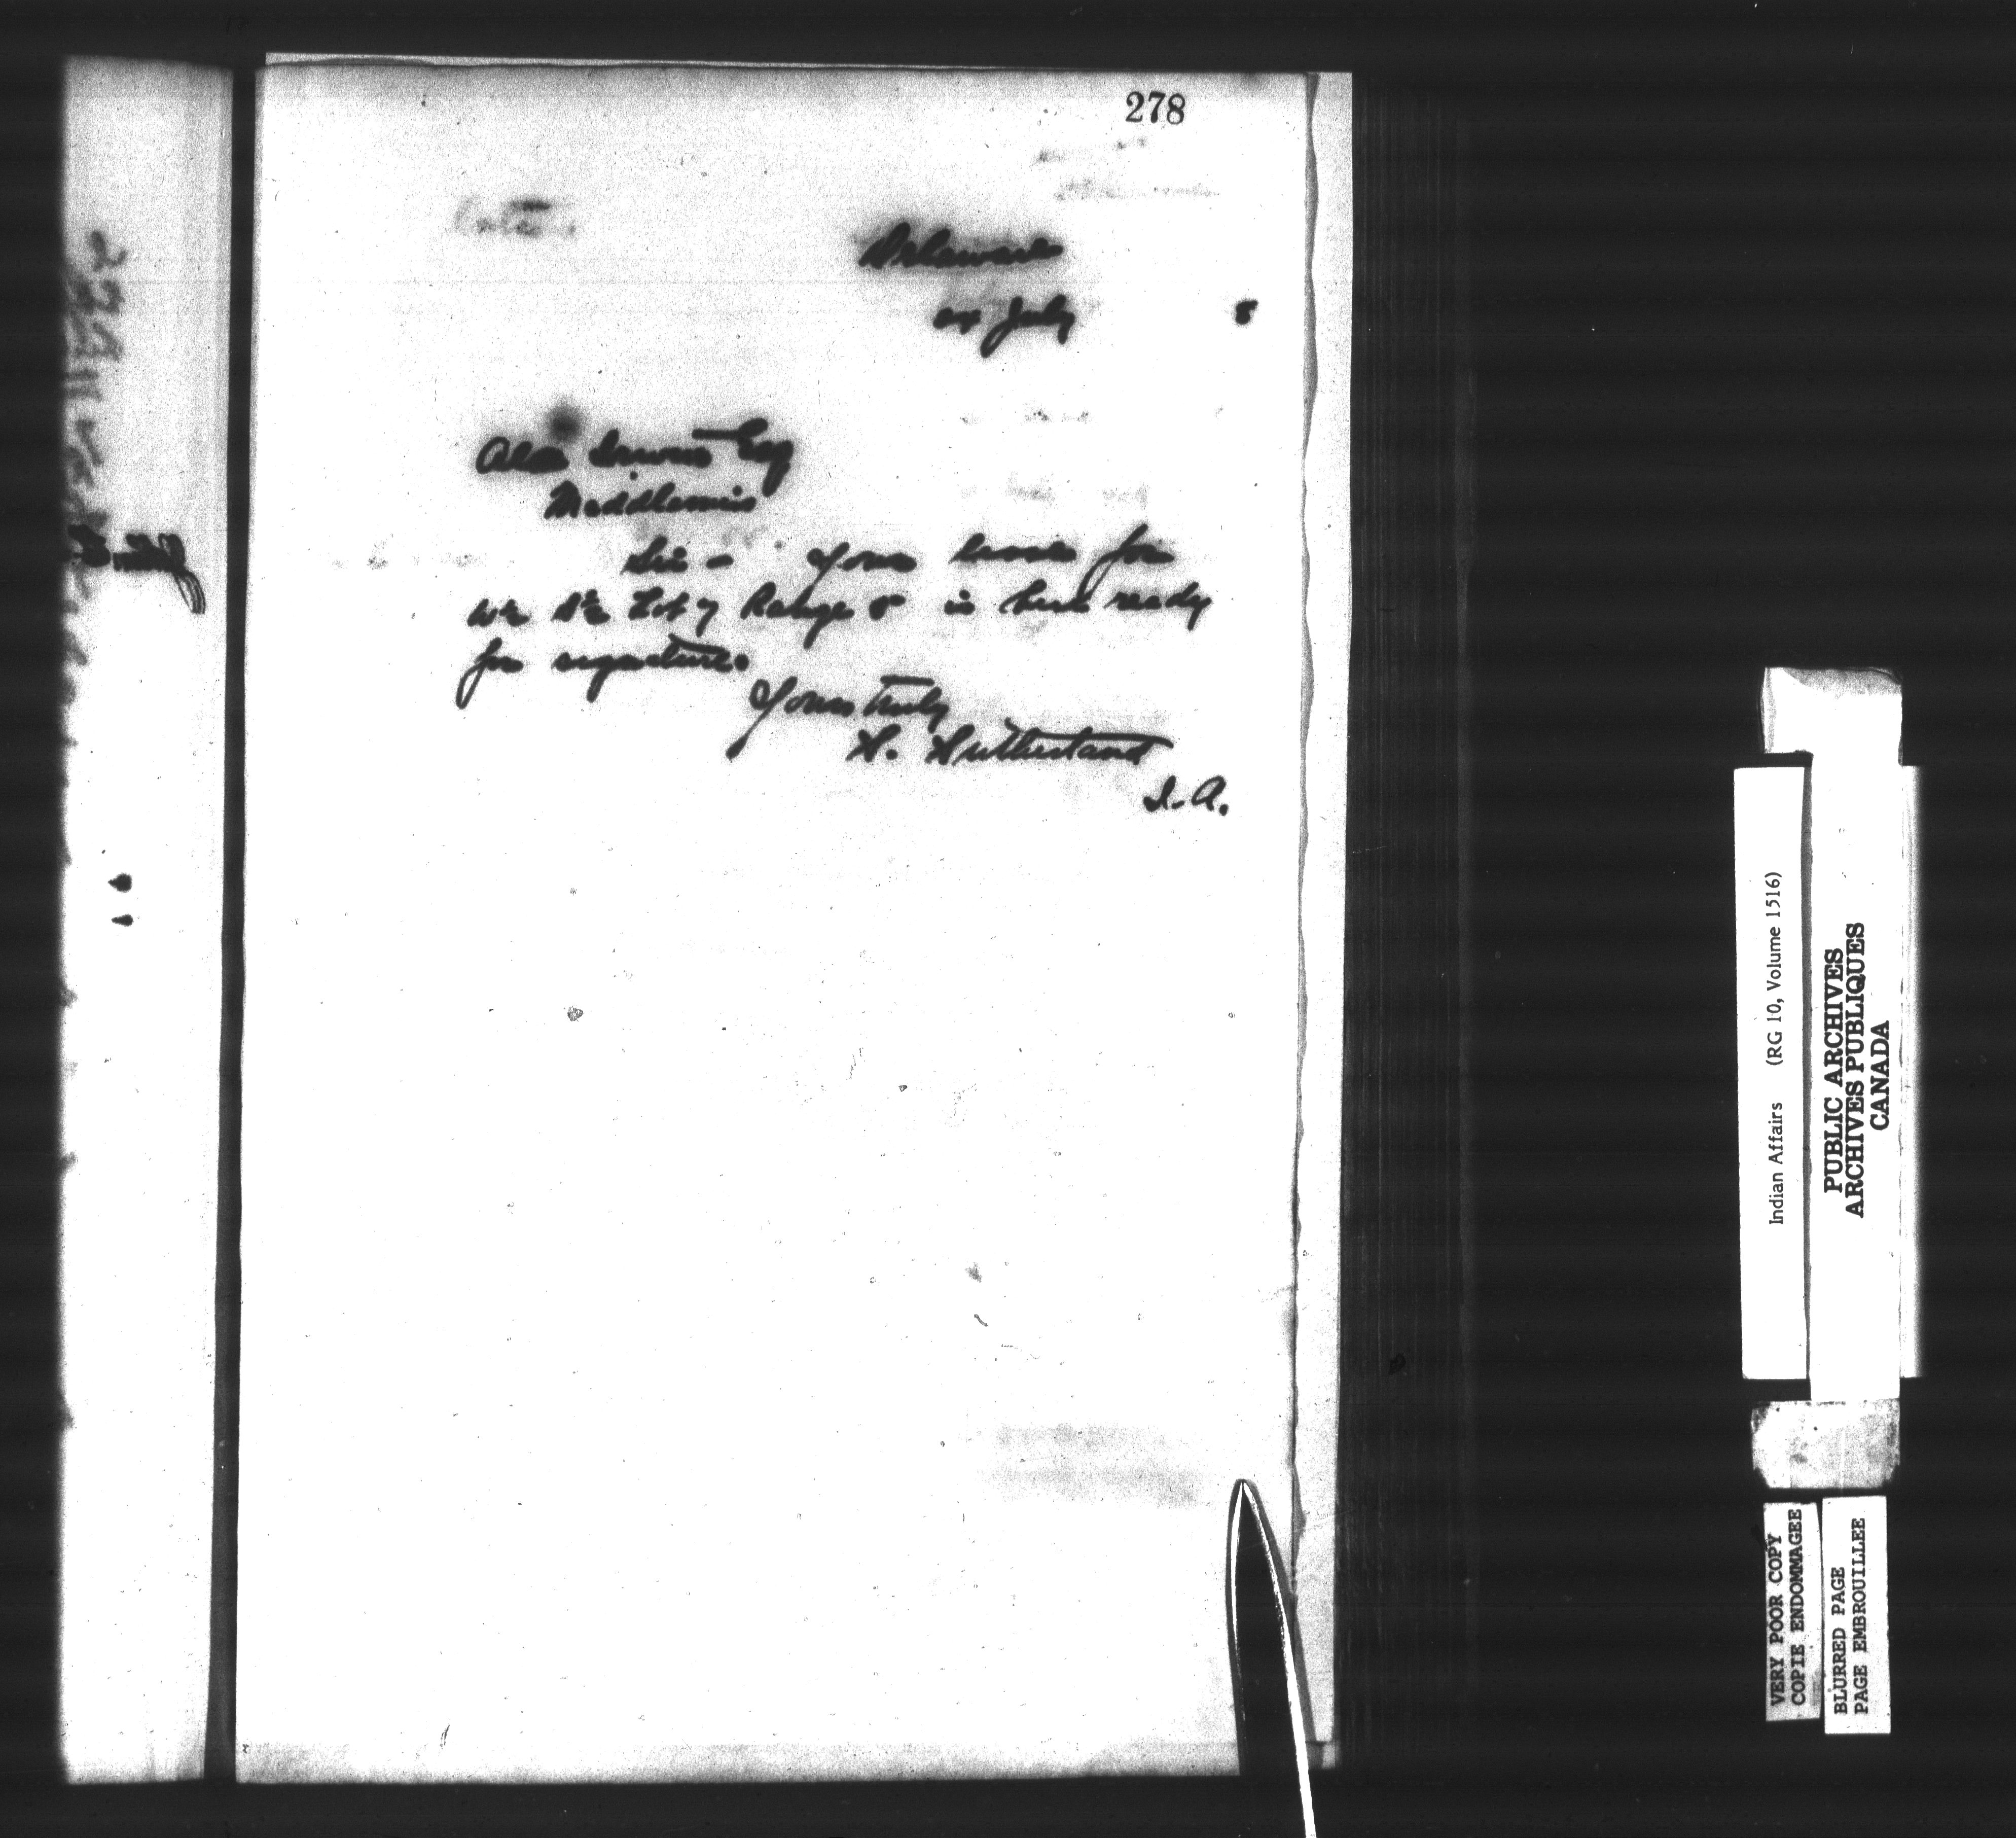 278
Delaware
24 July 8
Alex Esq
Middlemis
Sir - Your lease for
W½ S½ Lot 7 Range 8 is here ready
for signature.
Yours truly
S. Sutherland
I. A.
Indian Affairs (RG 10, Volume 1516)
PUBLIC ARCHIVES
ARCHIVES PUBLIQUES
CANADA
VERY POOR COPY
COPIE ENDOMMAGEE
BLURRED PAGE
PAGE EMBROUILLEE